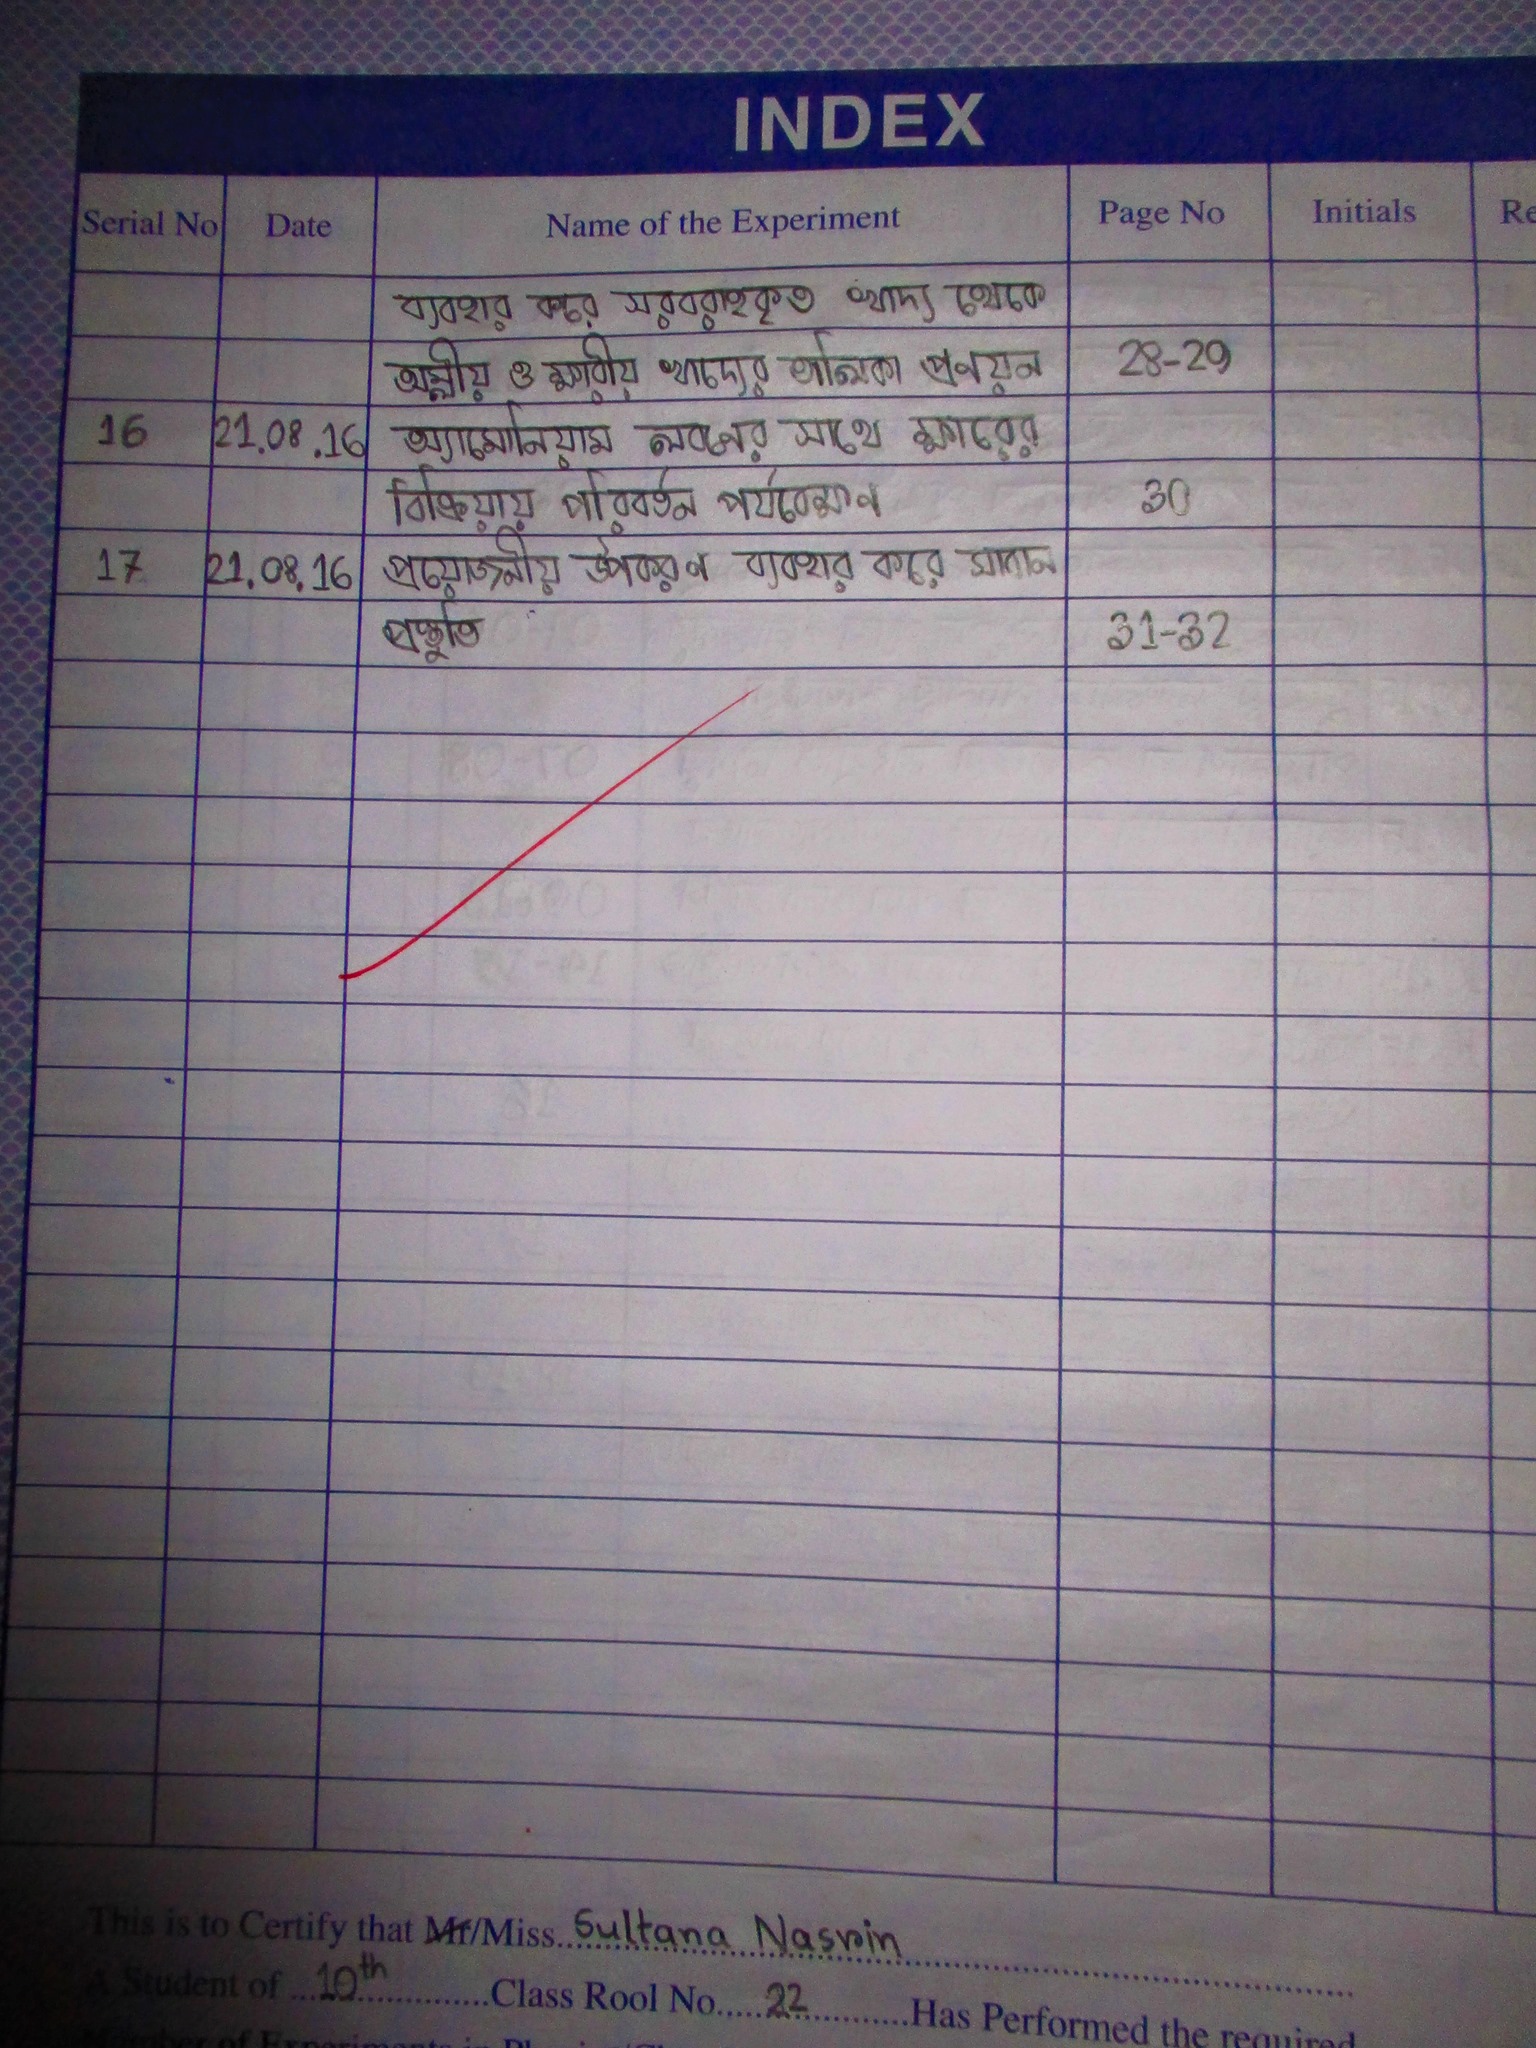 INDEX
Serial No Date Name of the Experiment Page No Initials Re
ব্যবহার করে সরবরাহকৃত খাদ্য থেকে
অম্লীয় ও ক্ষারীয় খাদ্যের তালিকা প্রনয়ন 28-29
16 21.08.16 অ্যামোনিয়াম লবনের সাথে ক্ষারের
বিক্রিয়ায় পরিবর্তন পর্যবেক্ষণ 30
17 21.08.16 প্রয়োজনীয় উপকরণ ব্যবহার করে সাবান
প্রস্তুতি 31-32
This is to Certify that Mr/Miss Sultana Nasrin
A Student of 10th Class Rool No. 22 Has Performed the required
Number of Experiments in